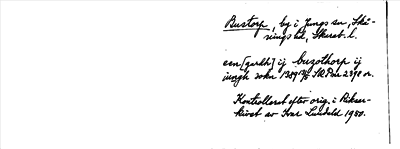 Bustorp, by i Jungs sn, Skå-
nings hd, Skarab. l.
een [gardh] ij buzathorp ij
iungh sokn 1389 SRAPerg 2398 or.
Kontrollerat efter orig. i Riksar-
kivet av Ivar Lundahl 1950.